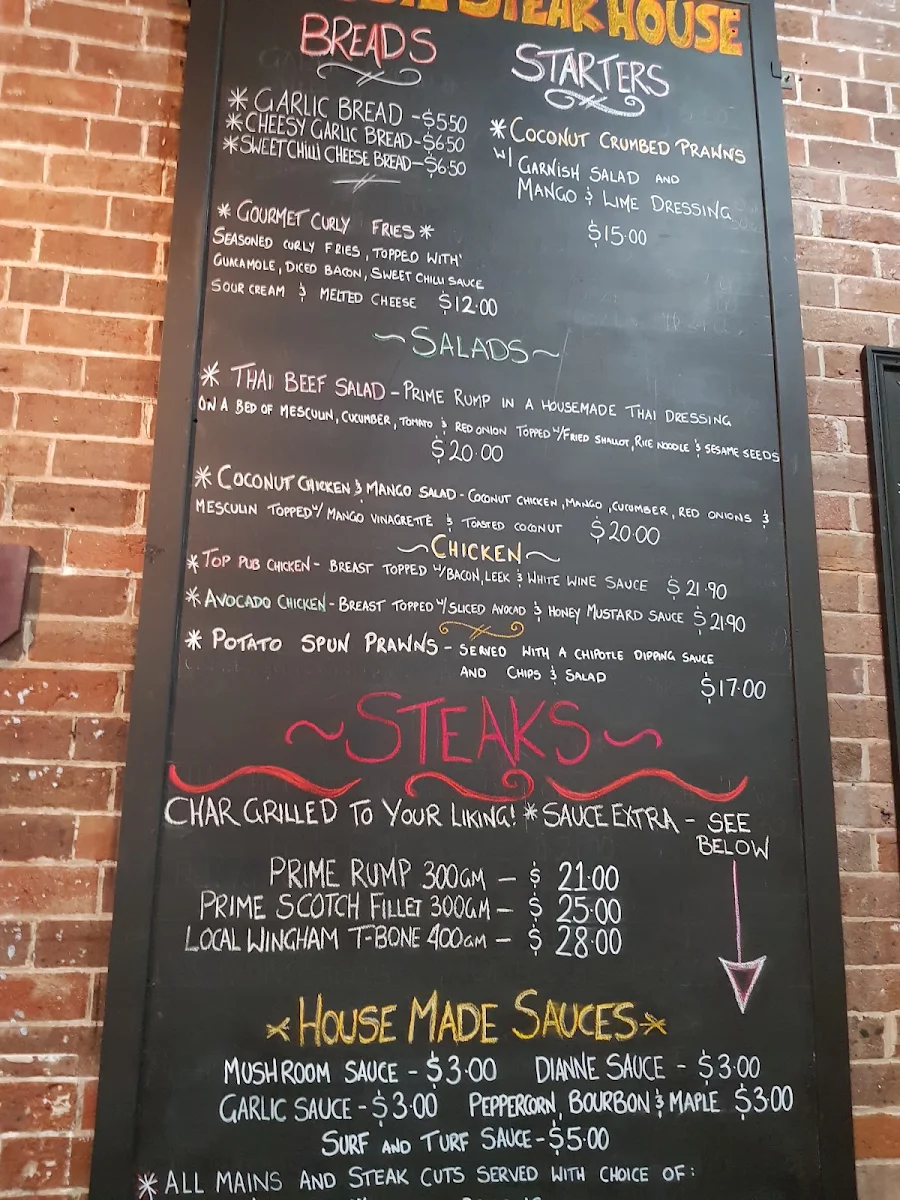 STEAK HOUSE
BREADS
* GARLIC BREAD - $5.50
* CHEESY GARLIC BREAD - $6.50
* SWEET CHILLI CHEESE BREAD - $6.50
* GOURMET CURLY FRIES *
SEASONED CURLY FRIES, TOPPED WITH
GUACAMOLE, DICED BACON, SWEET CHILLI SAUCE
SOUR CREAM & MELTED CHEESE $12.00
STARTERS
* COCONUT CRUMBED PRAWNS
W/ GARNISH SALAD AND
MANGO & LIME DRESSING
$15.00
~SALADS~
* THAI BEEF SALAD - PRIME RUMP IN A HOUSEMADE THAI DRESSING
ON A BED OF MESCULIN, CUCUMBER, TOMATO & RED ONION TOPPED W/ FRIED SHALLOT, RICE NOODLE & SESAME SEEDS
$20.00
* COCONUT CHICKEN & MANGO SALAD - COCONUT CHICKEN, MANGO, CUCUMBER, RED ONIONS &
MESCULIN TOPPED W/ MANGO VINAGRETTE & TOASTED COCONUT $20.00
~CHICKEN~
* TOP PUB CHICKEN - BREAST TOPPED W/ BACON, LEEK & WHITE WINE SAUCE $21.90
* AVOCADO CHICKEN - BREAST TOPPED W/ SLICED AVOCAD & HONEY MUSTARD SAUCE $21.90
* POTATO SPUN PRAWNS - SERVED WITH A CHIPOTLE DIPPING SAUCE
AND CHIPS & SALAD
$17.00
~STEAKS~
CHAR GRILLED TO YOUR LIKING! * SAUCE EXTRA - SEE
BELOW
PRIME RUMP 300GM - $ 21.00
PRIME SCOTCH FILLET 300GM - $ 25.00
LOCAL WINGHAM T-BONE 400GM - $ 28.00
HOUSE MADE SAUCES
MUSHROOM SAUCE - $3.00 DIANNE SAUCE - $3.00
GARLIC SAUCE - $3.00 PEPPERCORN, BOURBON & MAPLE $3.00
SURF AND TURF SAUCE - $5.00
* ALL MAINS AND STEAK CUTS SERVED WITH CHOICE OF: